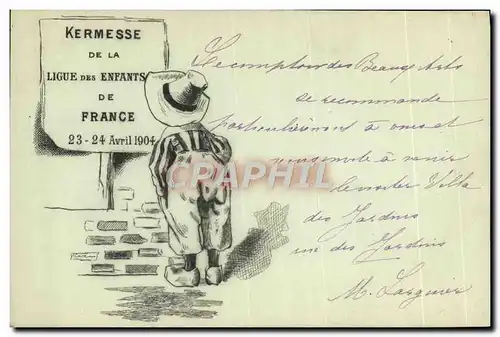 KERMESSE
DE LA
LIGUE DES ENFANTS
DE
FRANCE
23-24 Avril 1904
Le comptoir des Beaux Arts
se recommande
particulièrement à vous et
vous invite à venir
le visiter Villa
des Jardins
rue des Jardins
M. Larguier
CPAPHIL